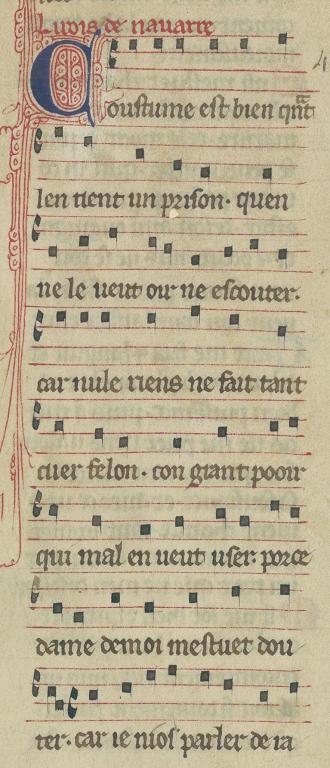 Li rois de navarre
Coustume est bien qant
len tient un prison. quen
ne le ueut oir ne escouter.
car nule riens ne fait tant
cuer felon. con grant pooir
qui mal en ueut user. porce
dame de moi mestuet dou
ter. car ie nios parler de ra